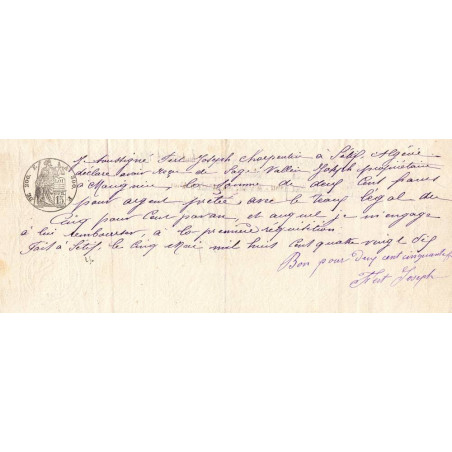 Je soussigné Fert Joseph Charpentier à Sétif, Algérie
déclare avoir reçu de Page Vallier Joseph propriétaire
à Mauguin, la somme de deux Cent francs
pour argent prêté, avec le taux légal de
Cinq pour Cent par an, et auquel je m'engage
à lui rembourser, à la première réquisition
Fait à Sétif, le Cinq Mai mil huit cent quatre vingt dix
Bon pour deux cent cinquante
Fert Joseph